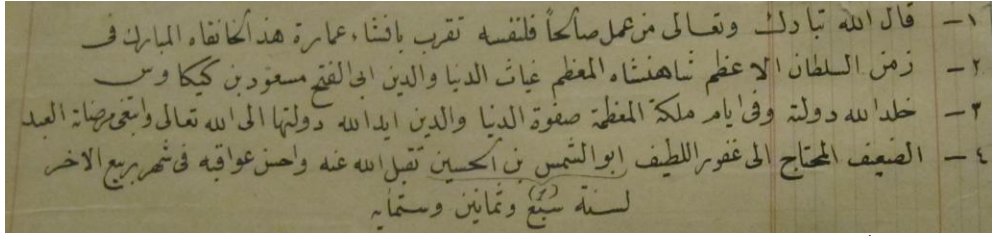 ١- قال الله تبارك وتعالى من عمل صالحاً فلنفسه تقرب بافشاء عمارة هذ الخانقاه المبارك فى
٢- زمن السلطان الاعظم شاهنشاه المعظم غياث الدنيا والدين ابى الفتح مسعود بن كيكاوس
٣- خلد الله دولته وفى ايام ملكة المعظمة صفوة الدنيا والدين ايد الله دولتها الى الله تعالى وابتغى مرضاته العبد
٤- الضعيف المحتاج الى غفور اللطيف ابو الشمس بن الحسين تقبل الله عنه واحسن عواقبه فى شهر ربيع الاخر
لسنة سبع (؟) وثمانين وستمايه